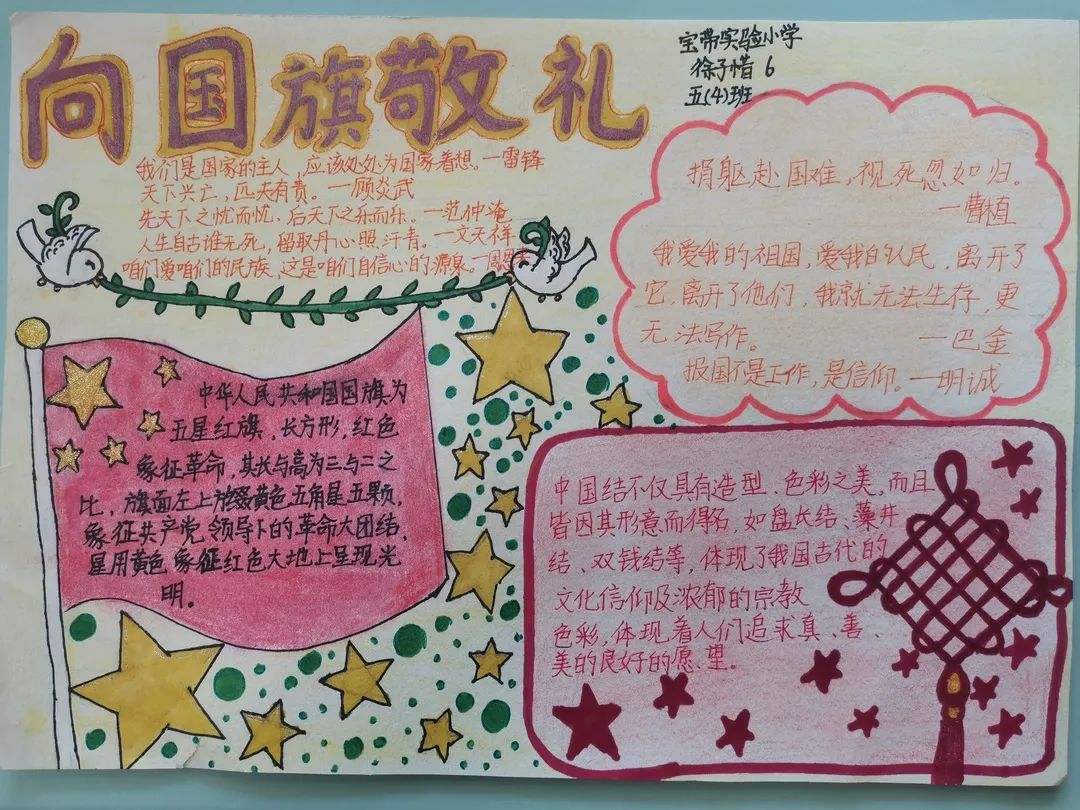 向国旗敬礼
宝带实验小学
徐子惜 6
五(4)班
我们是国家的主人，应该处处为国家着想。一雷锋
天下兴亡，匹夫有责。一顾炎武
先天下之忧而忧、后天下之乐而乐。一范仲淹
人生自古谁无死，留取丹心照汗青。一文天祥
咱们爱咱们的民族，这是咱们自信心的源泉。一周恩来
捐躯赴国难，视死忽如归。
一曹植
我爱我的祖国，爱我的人民，离开了
它，离开了他们，我就无法生存，更
无法写作。 一巴金
报国不是工作，是信仰。一明诚
中华人民共和国国旗为
五星红旗，长方形，红色
象征革命，其长与高为三与二之
比，旗面左上方缀黄色五角星五颗，
象征共产党领导下的革命大团结，
星用黄色象征红色大地上呈现光
明。
中国结不仅具有造型、色彩之美，而且
皆因其形意而得名，如盘长结、藻井
结、双钱结等，体现了我国古代的
文化信仰及浓郁的宗教
色彩，体现着人们追求真、善、
美的良好的愿望。